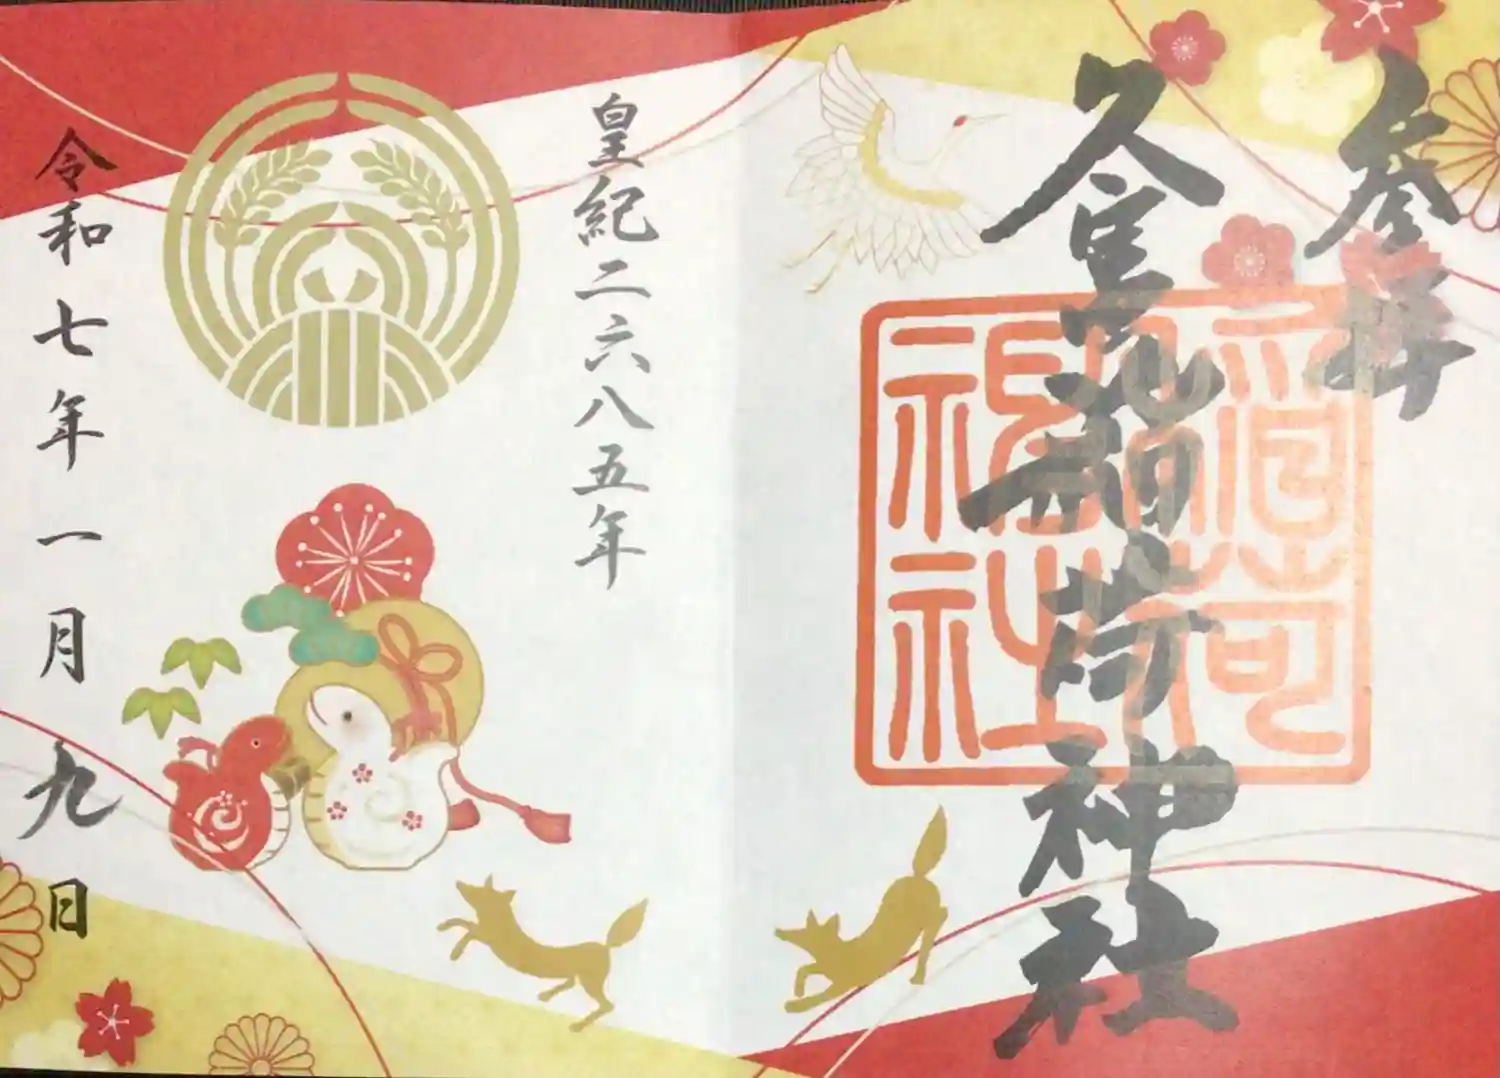 参拝
稲荷神社
稲荷
神社
皇紀二六八五年
令和七年一月九日